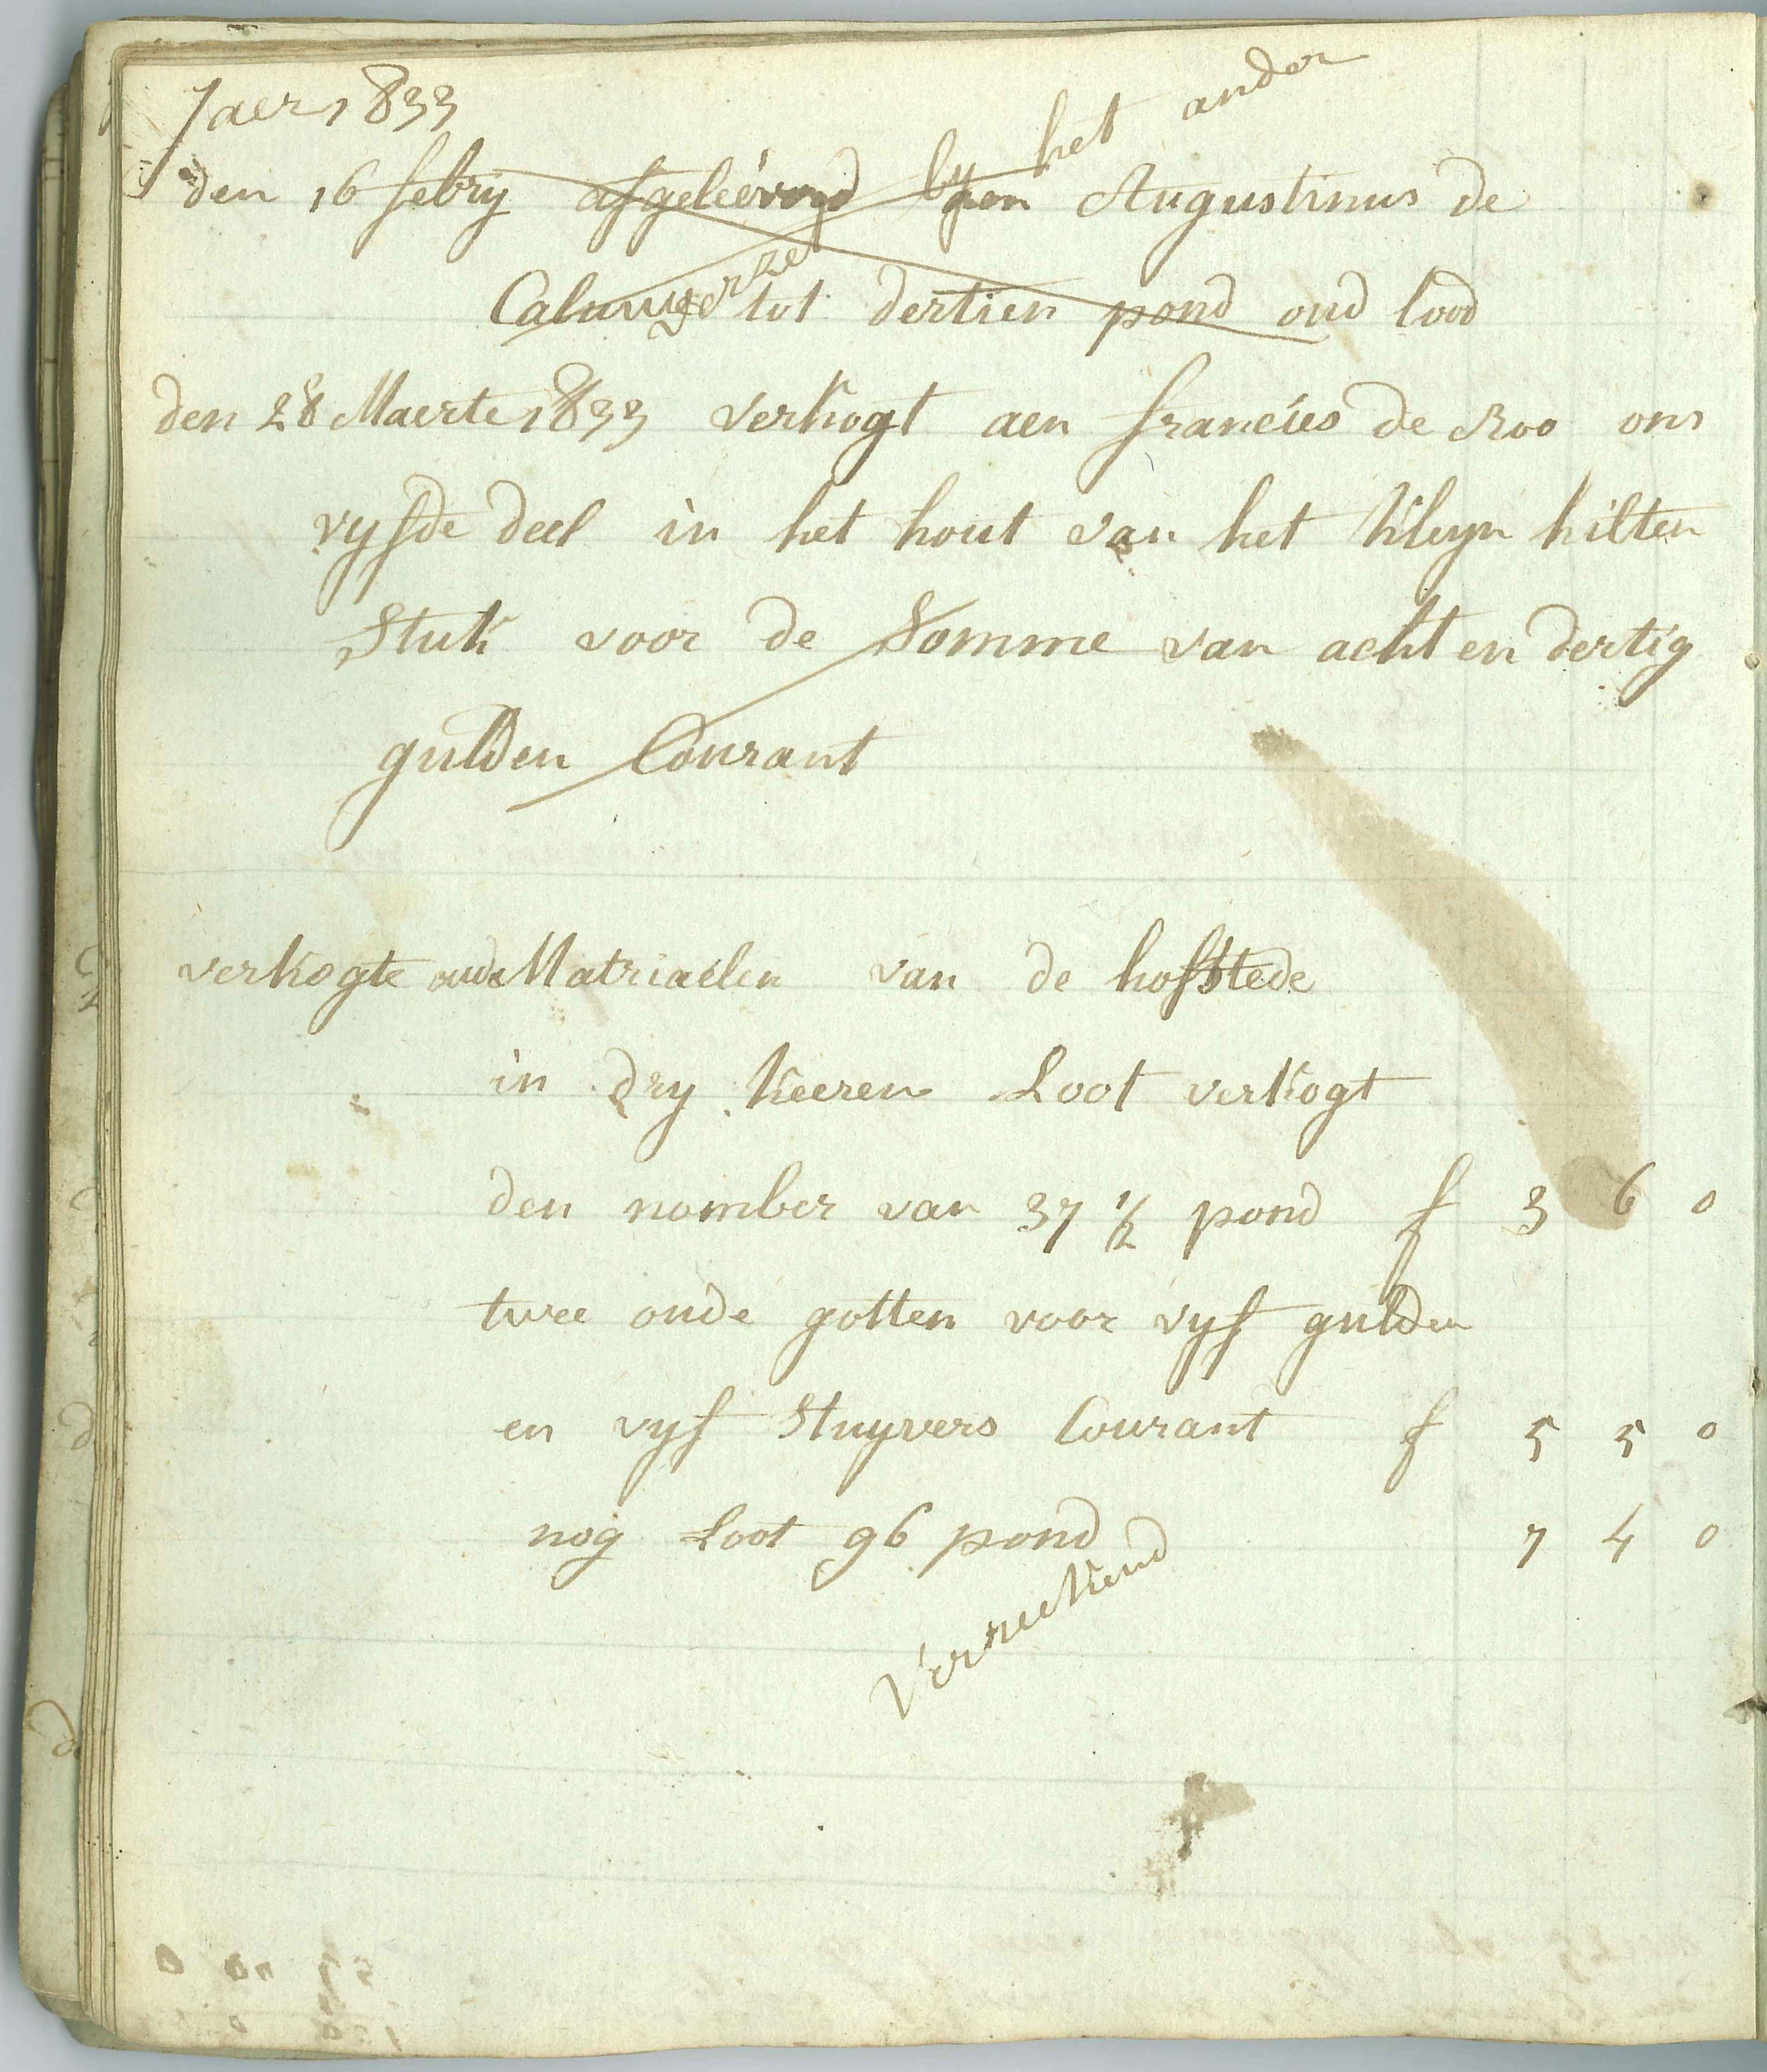 Jaer 1833
den 16 febry afgeleévend aen Augustinus de
by het ander
Caluwe tot dertien pond oud lood
den 28 Maerte 1833 verkogt aen francies de Roo ons
vyfde deel in het hout van het kleyn hilten
Stuk voor de Somme van acht en dertig
gulden Courant
verkogte oude Matriaelen van de hofstede
in dry keeren Loot verkogt
den nomber van 37 1/2 pond f 3 6 0
twee oude gotten voor vyf gulden
en vyf Stuyvers Courant f 5 5 0
nog Loot 96 pond 7 4 0